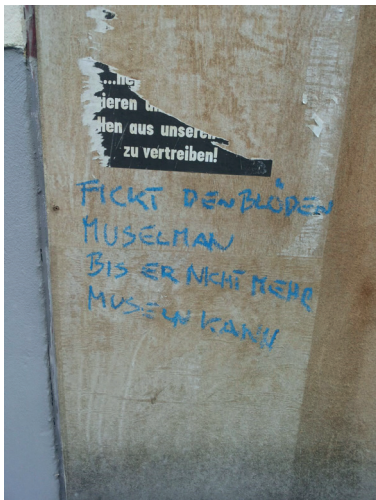 aus unseren
zu vertreiben!
FICKT DEN BLÖDEN
MUSELMAN
BIS ER NICHT MEHR
MUSELN KANN